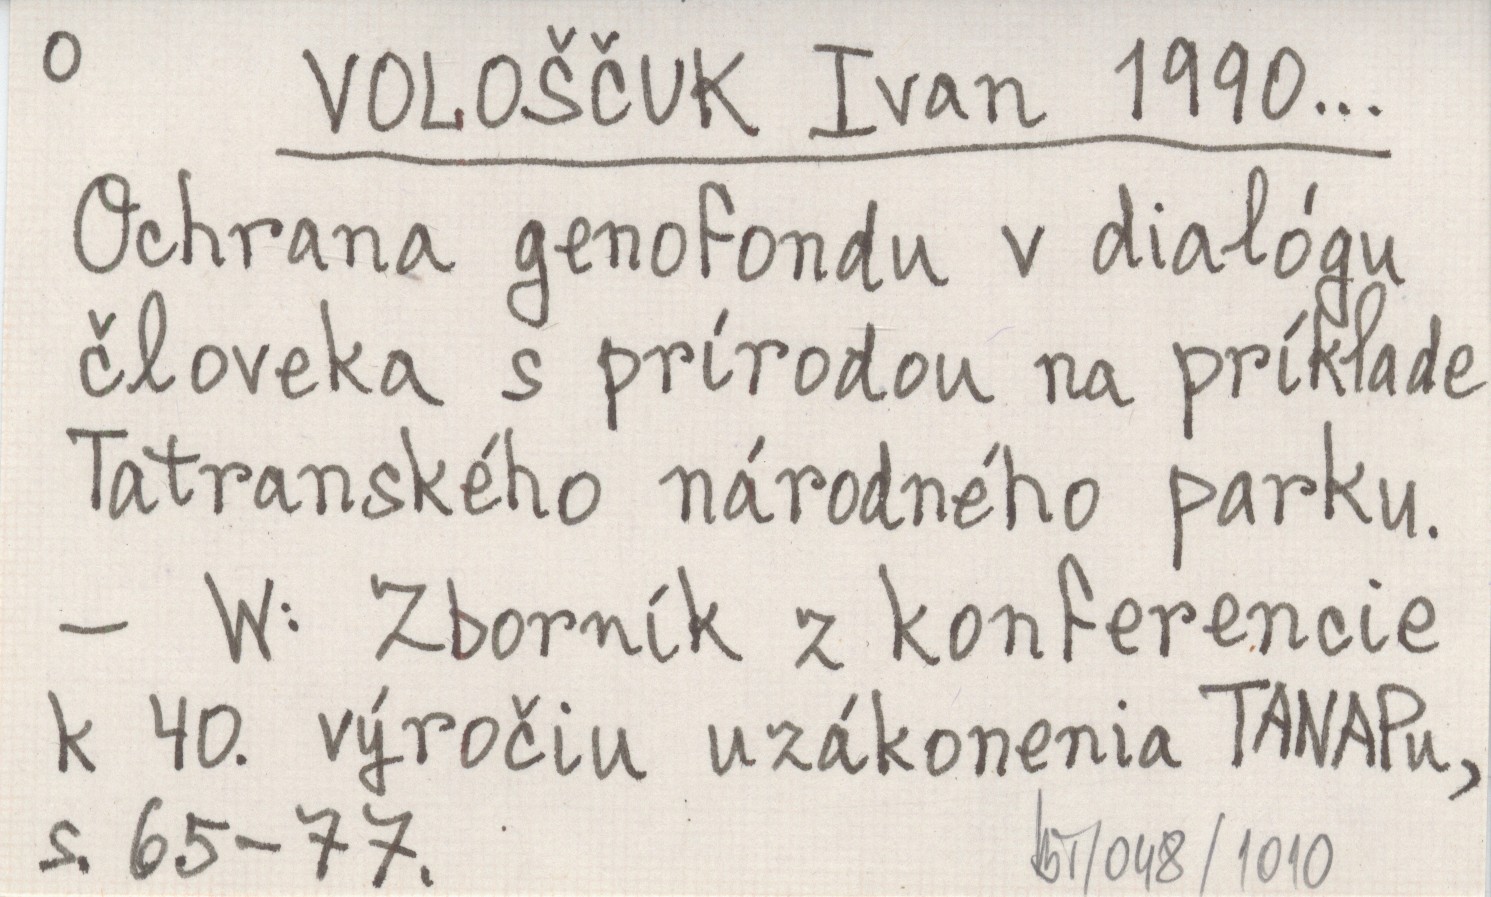 O
VOLOŠČUK Ivan 1990...
Ochrana genofondu v dialógu
človeka s prírodou na príklade
Tatranského národného parku.
– W: Zborník z konferencie
k 40. výročiu uzákonenia TANAPu,
s. 65–77.
/048/1010